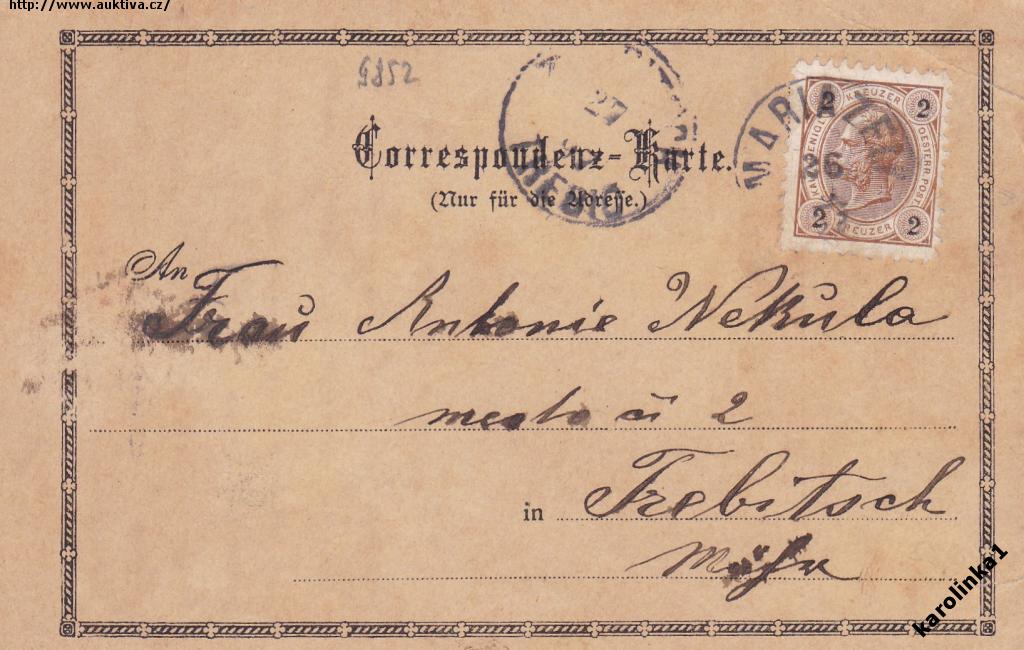 http://www.auktiva.cz/
9852
Correspondenz-Karte.
(Nur für die Adresse.)
27
TŘEBÍČ
MARIAZELL
26
2 KREUZER 2
KAIS. KÖNIGL. OESTERR. POST
2 KREUZER 2
An Frau Antonie Nekula
mesto či 2
in Trebitsch
Mähr
karolinka1